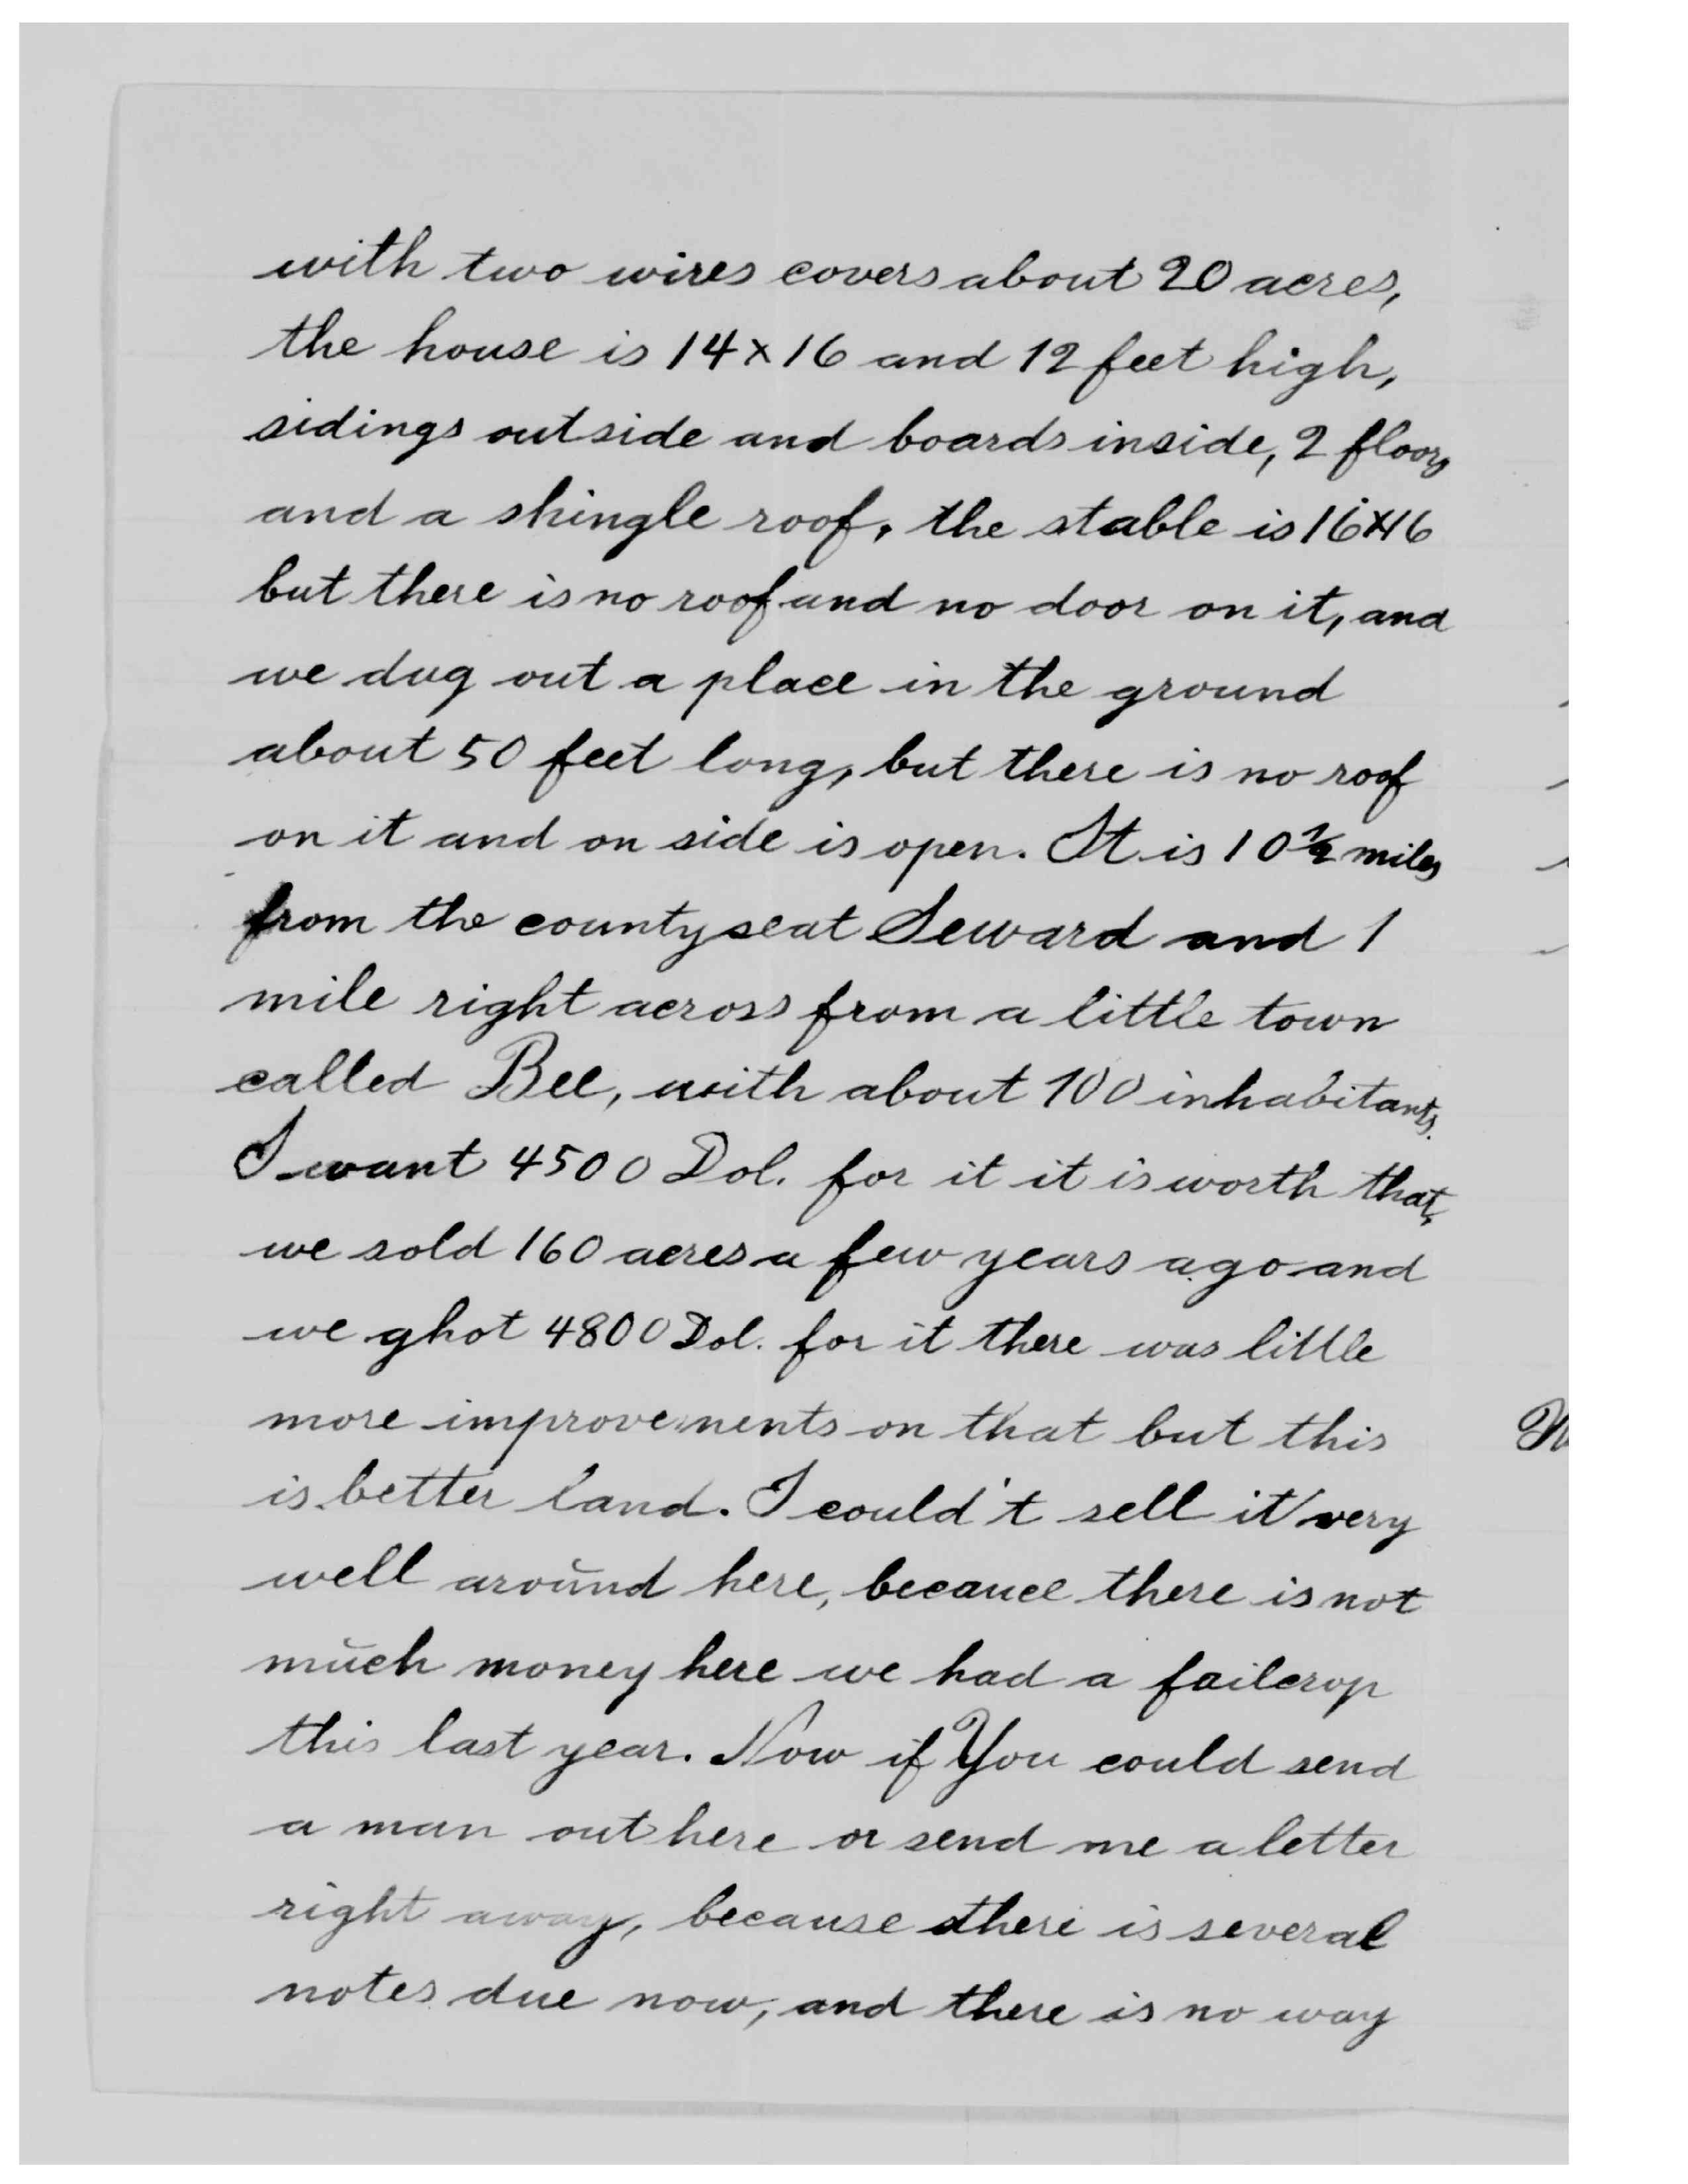 with two wires covers about 20 acres,
the house is 14 x 16 and 12 feet high,
sidings outside and boards inside, 2 floors
and a shingle roof, the stable is 16x16
but there is no roof and no door on it, and
we dug out a place in the ground
about 50 feet long, but there is no roof
on it and on side is open. It is 10 1/2 miles
from the county seat Seward and 1
mile right across from a little town
called Bee, with about 100 inhabitants.
I want 4500 Dol. for it it is worth that,
we sold 160 acres a few years ago and
we ghot 4800 Dol. for it there was little
more improvements on that but this
is better land. I could't sell it very
well around here, becauce there is not
much money here we had a failcrop
this last year. Now if You could send
a man out here or send me a letter
right away, because there is several
notes due now, and there is no way